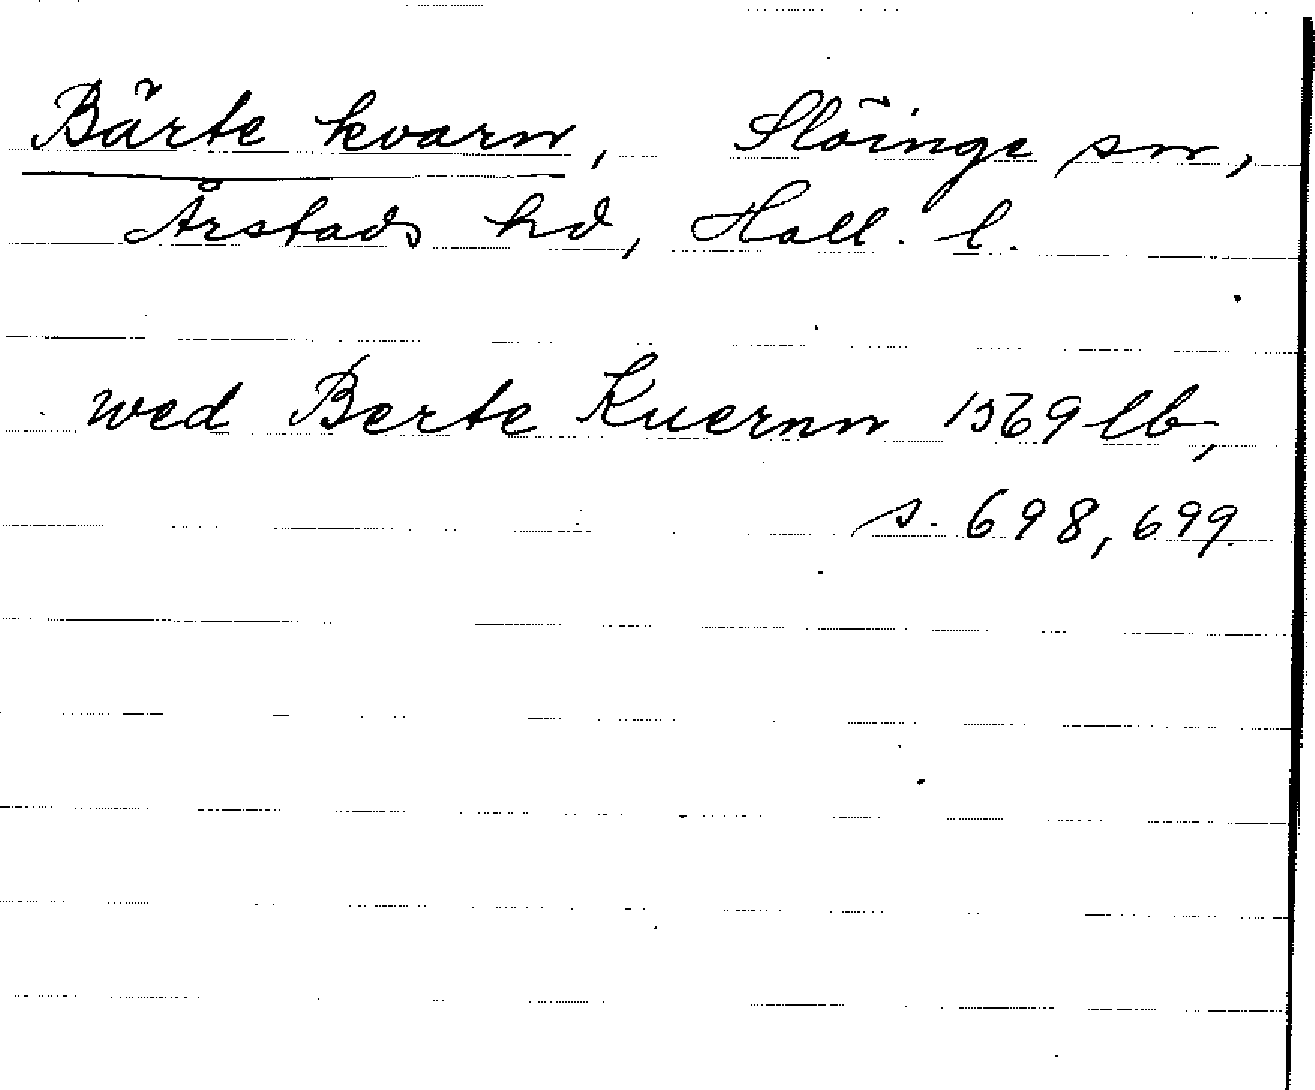 Bärte kvarn, Slöinge sn,
Årstads hd, Hall. l.
wed Berte Kuernn 1569 lb,
s. 698, 699.